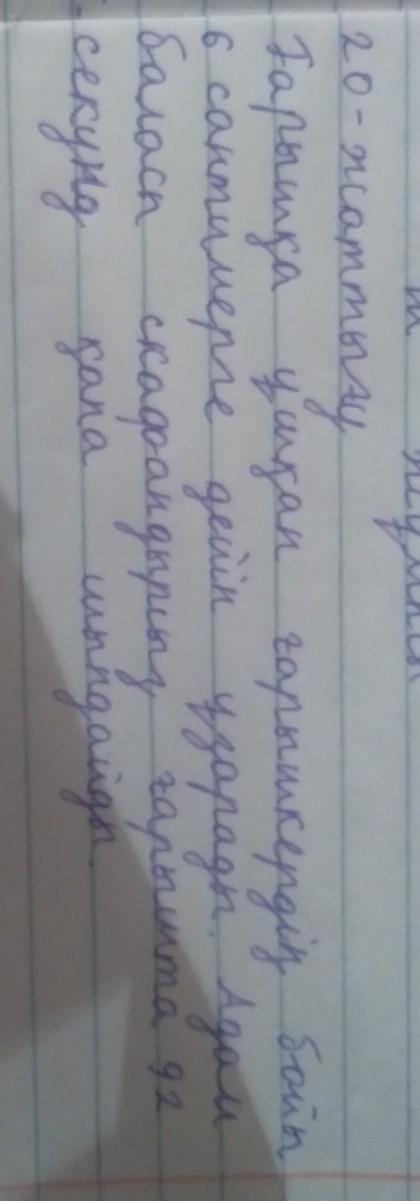 20-жаттығу
Ғарышқа ұшқан ғарышкердің бойы
6 сантимерге дейін ұзарады. Адам
баласы скафандырсыз ғарышта 92
секунд қапа шыпдайды.